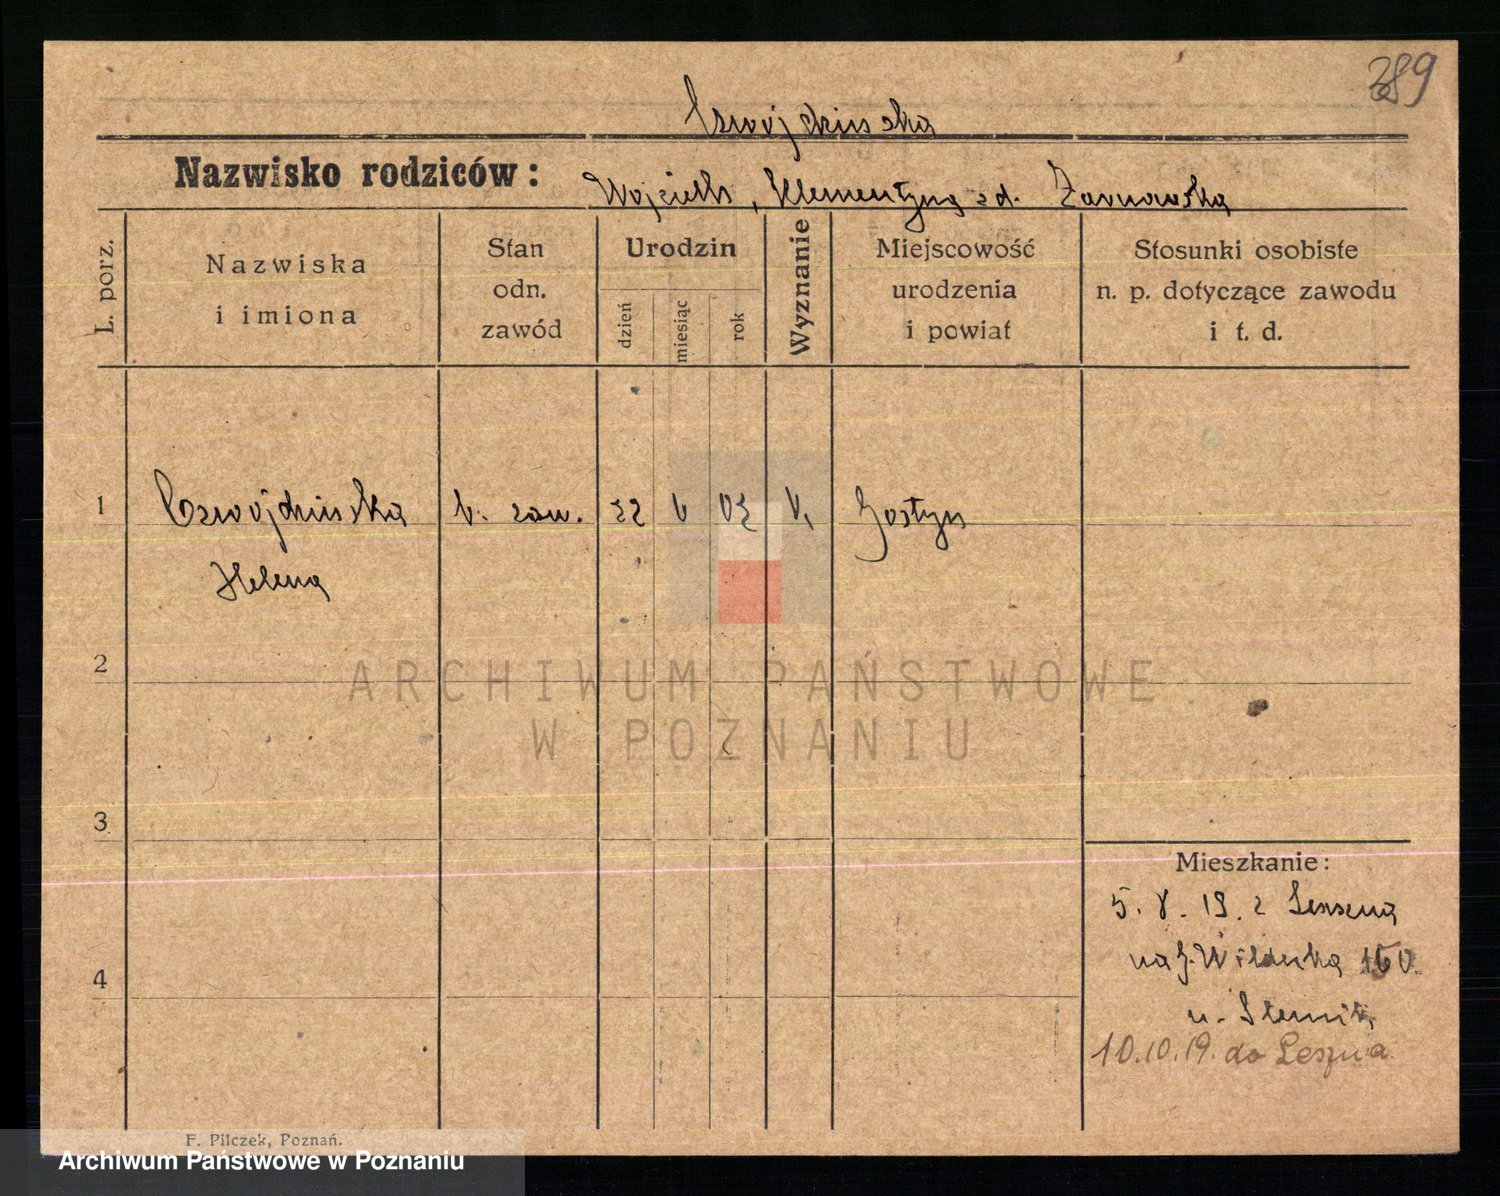 389
Czwojdzińska
Nazwisko rodziców: Wojciech, Klementyna zd. Żarnowska
L. porz.
Nazwiska
i imiona
Stan
odn.
zawód
Urodzin
dzień
miesiąc
rok
Wyznanie
Miejscowość
urodzenia
i powiat
Stosunki osobiste
n. p. dotyczące zawodu
i t. d.
1 Czwojdzińska b. zaw. 22 V 02 Gostyń
Helena
2
ARCHIWUM PAŃSTWOWE
W POZNANIU
3
Mieszkanie:
5. 8. 19. z Leszna
na G. Wildecką
4
10.10.19. do Leszna
F. Pilczek, Poznań.
Archiwum Państwowe w Poznaniu